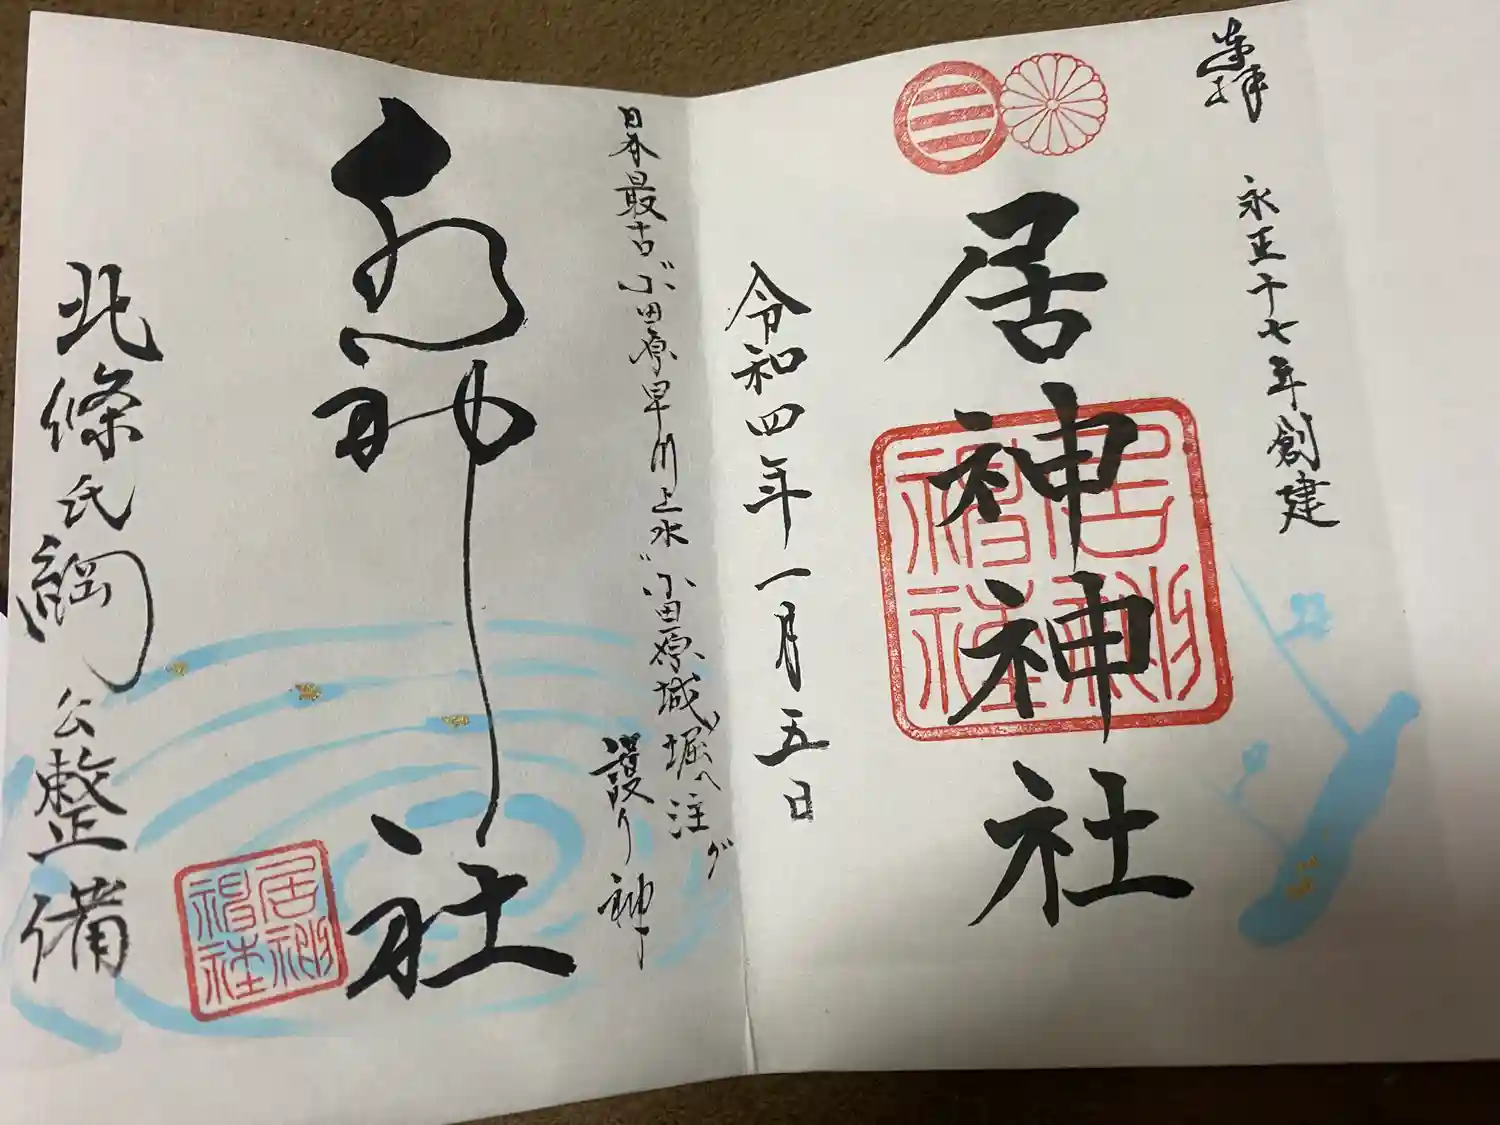 奉拝
永正十七年創建
居神神社
居神神社
令和四年一月五日
日本最古〝小田原早川上水〟小田原城の堀へ注グ
護り神
水神社
居神神社
北條氏綱公整備